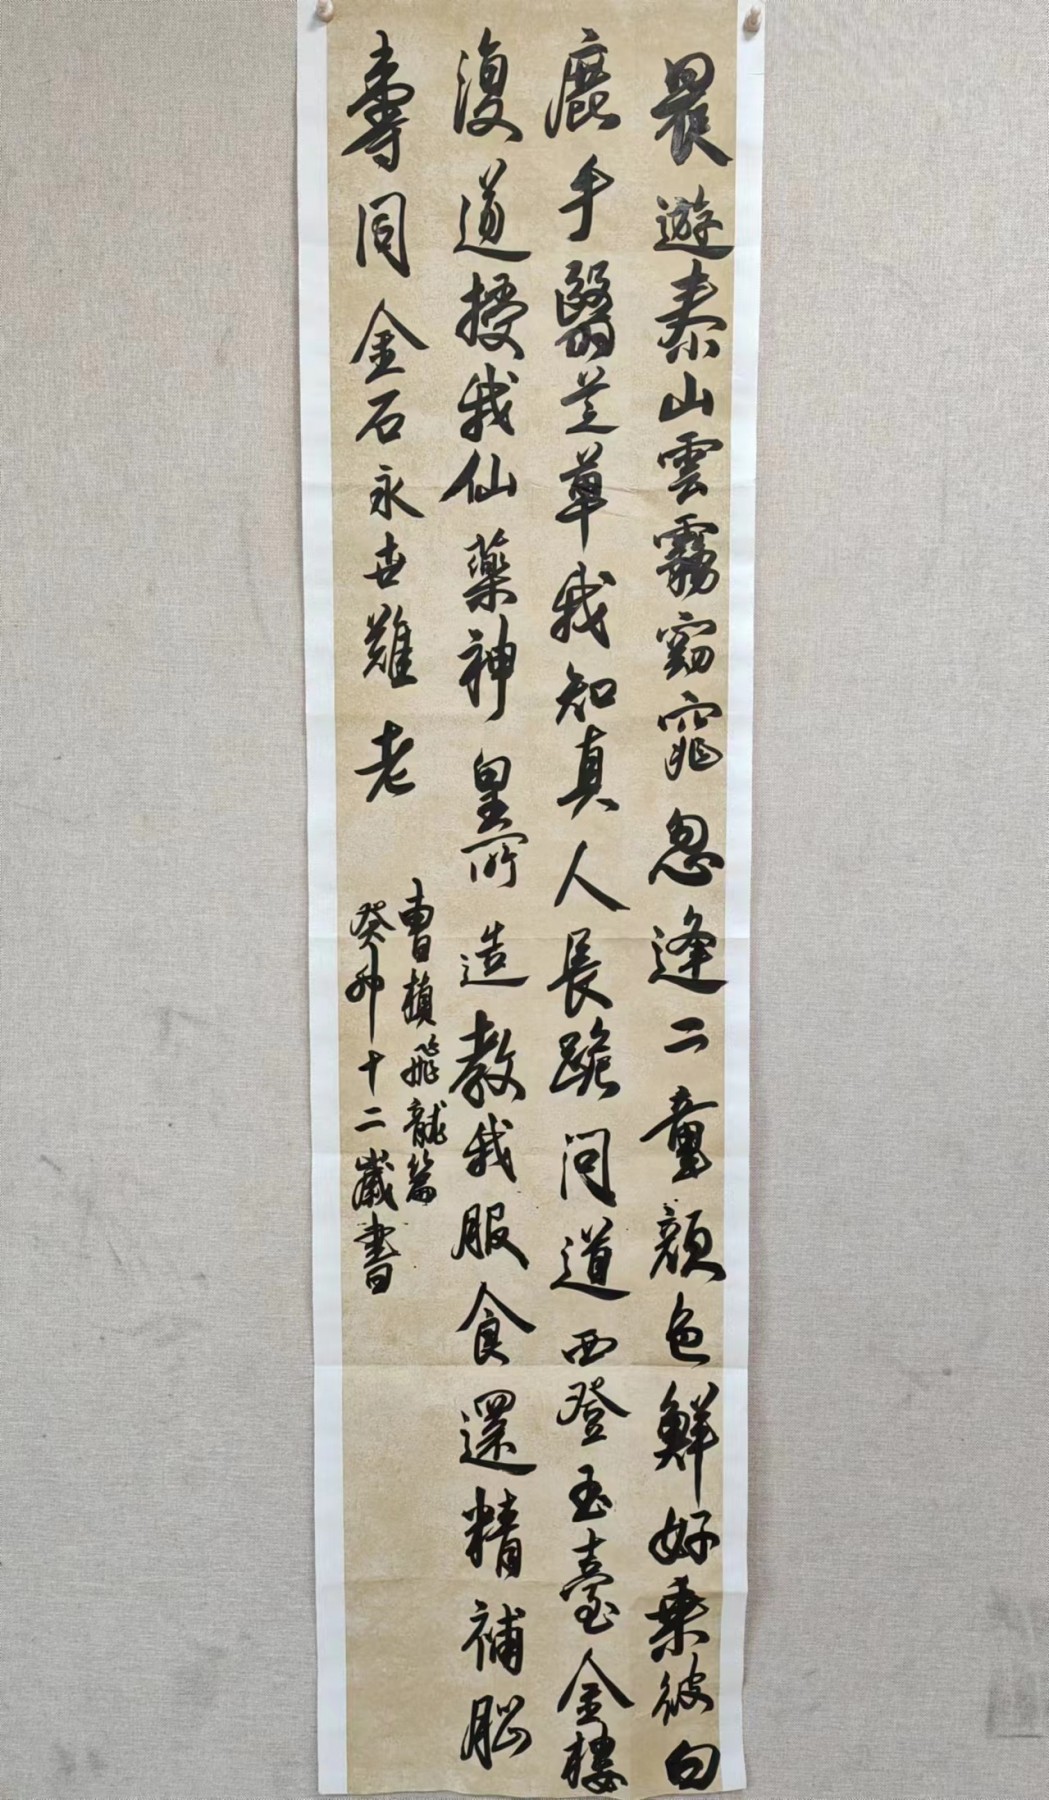 晨遊泰山雲霧窈窕忽逢二童顏色鮮好乘彼白
鹿手翳芝草我知真人長跪問道西登玉臺金樓
復道授我仙藥神皇所造教我服食還精補腦
壽同金石永世難老
曹植飛龍篇
癸卯十二歲書